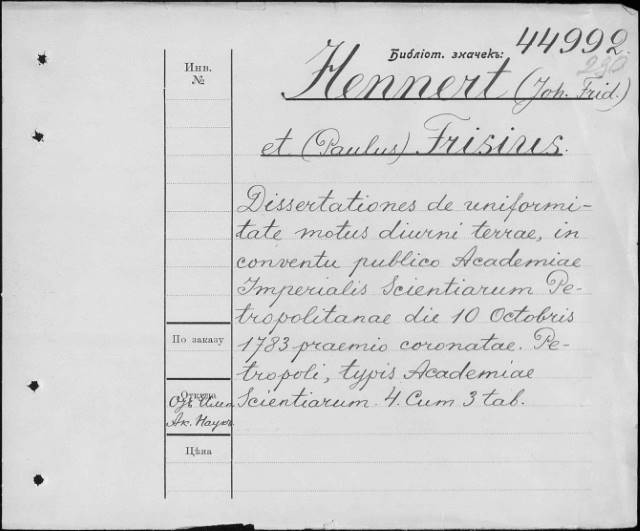 Библіот. значекъ: 44992.
230
Инв.
№
Hennert (Joh. Frid.)
et (Paulus) Frisius.
Dissertationes de uniformi-
tate motus diurni terrae, in
conventu publico Academiae
Imperialis Scientiarum Pe-
tropolitanae die 10 Octobris
1783 praemio coronatae. Pe-
tropoli, typis Academiae
Scientiarum. 4. Cum 3 tab.
По заказу
Откуда
Отъ Имп.
Ак. Наукъ
Цѣна